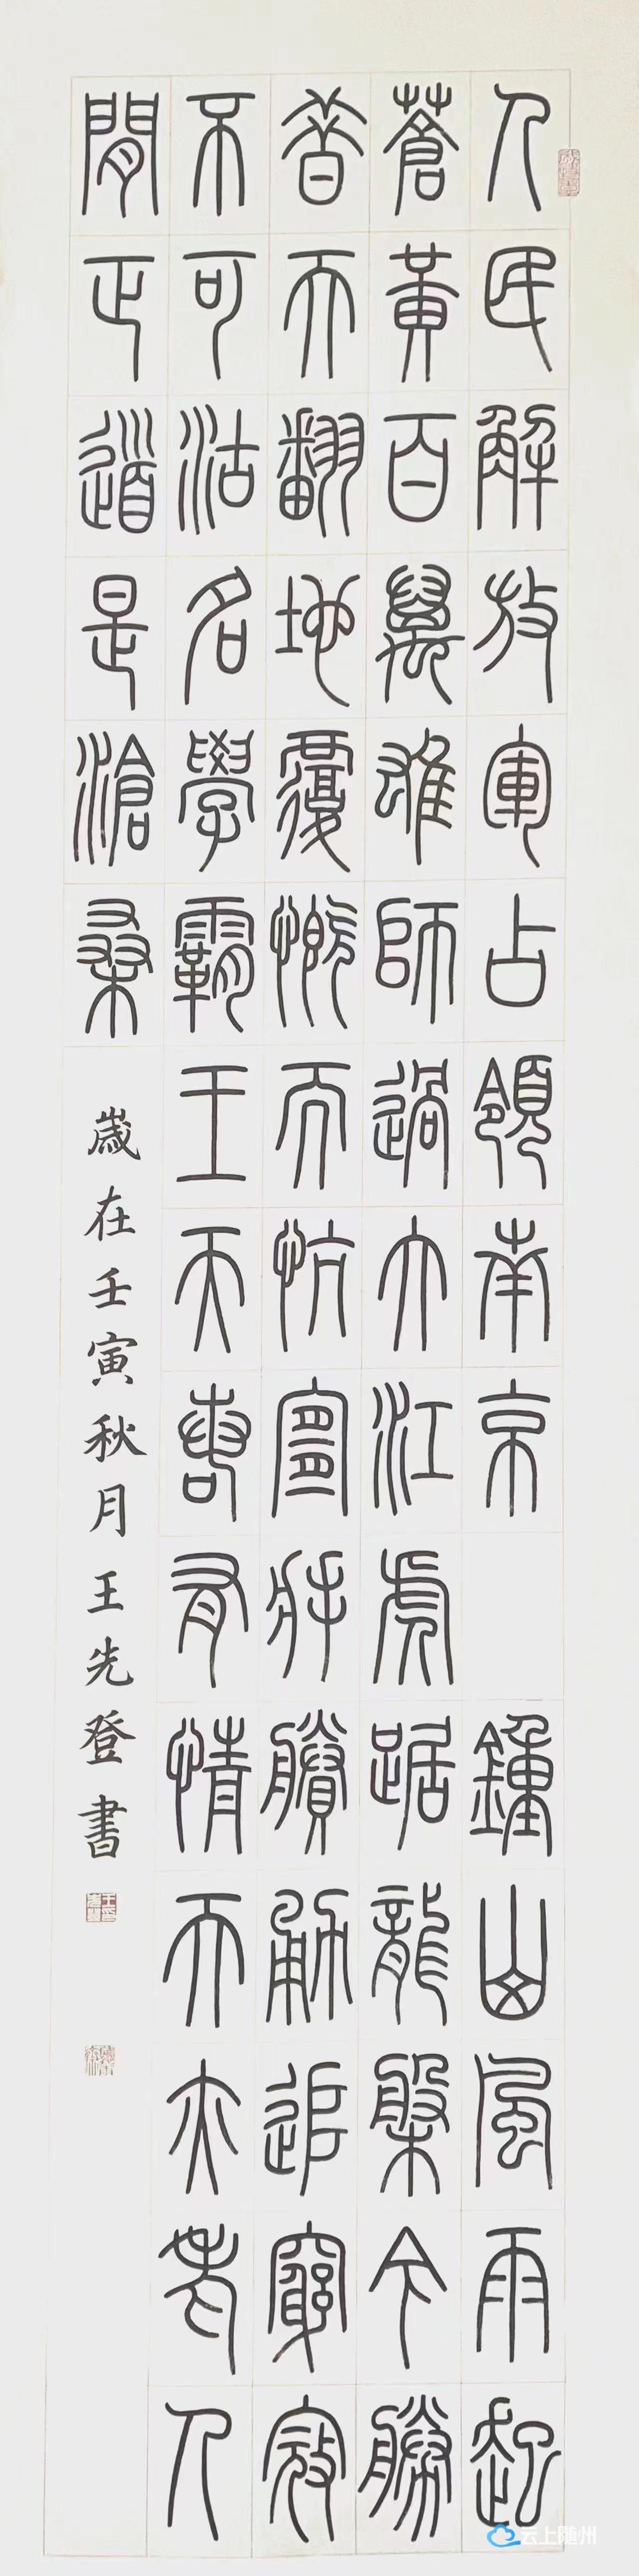 人民解放軍占領南京　鍾山風雨起
蒼黃百萬雄師過大江虎踞龍槃今勝
昔天翻地覆慨而慷宜將賸勇追窮寇
不可沽名學霸王天若有情天亦老人
閒正道是滄桑
歲在壬寅秋月王先登書
云上随州